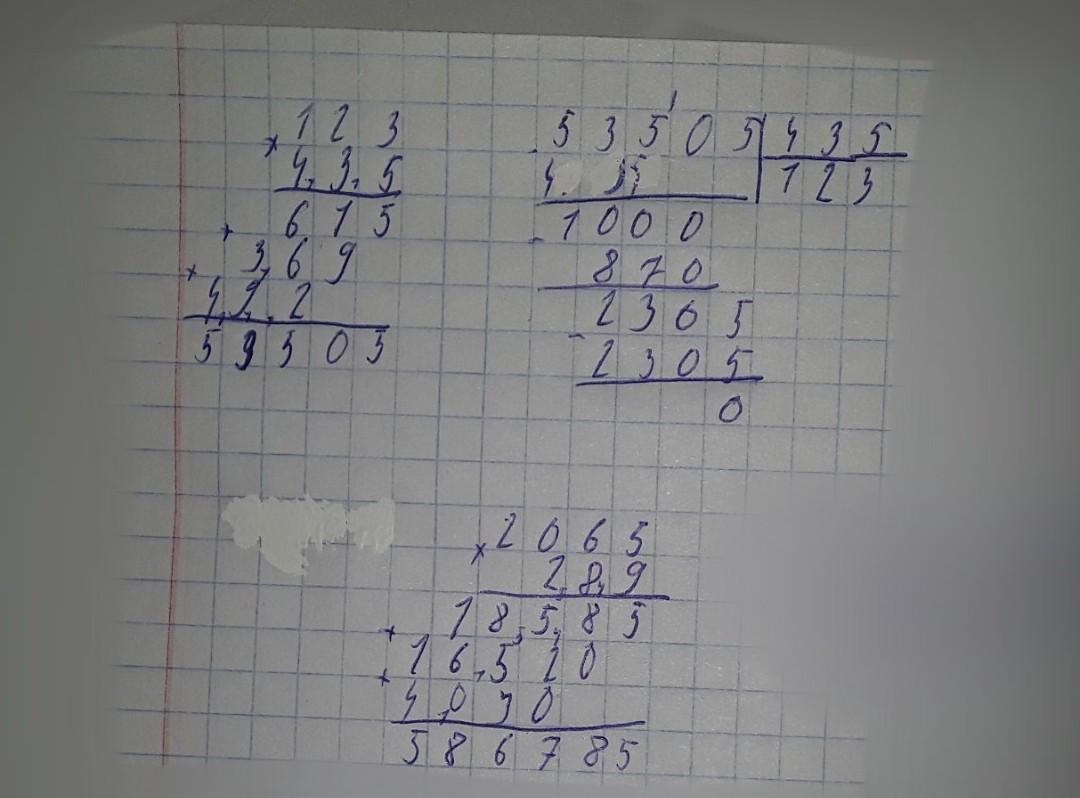 123
× 4,3,5
+ 615
+ 3,69
4,9,2
53505
- 53505 | 435
435 | 123
- 1000
870
- 1305
1305
0
× 2065
2,8,9
+ 18,5,85
+ 16,520
4,030
586785